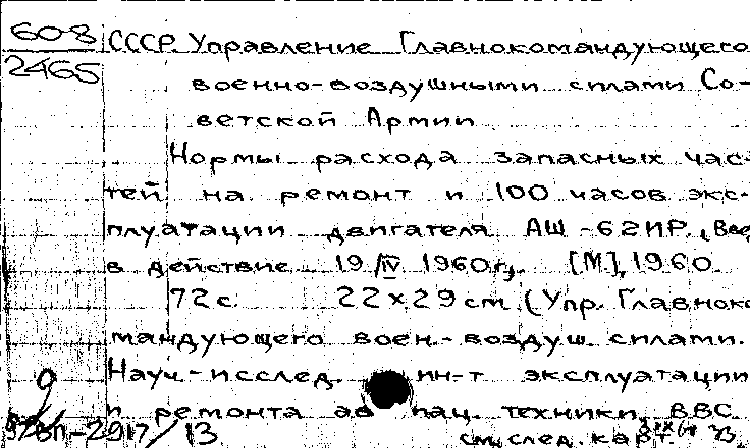 608
2465
СССР. Управление Главнокомандующего
военно-воздушными силами Со-
ветской Армии
Нормы расхода запасных час-
тей на ремонт и 100 часов экс-
плуатации двигателя АШ-62ИР. Вве
в действие 19/IV 1960г. [М], 1960.
72с. 22×29 см (Упр. Главноко
мандующего воен.-воздуш. силами.
Науч.-исслед. ин-т эксплуатации
и ремонта ав пац. техники ВВС
9
-2917/13
см. след. карт.